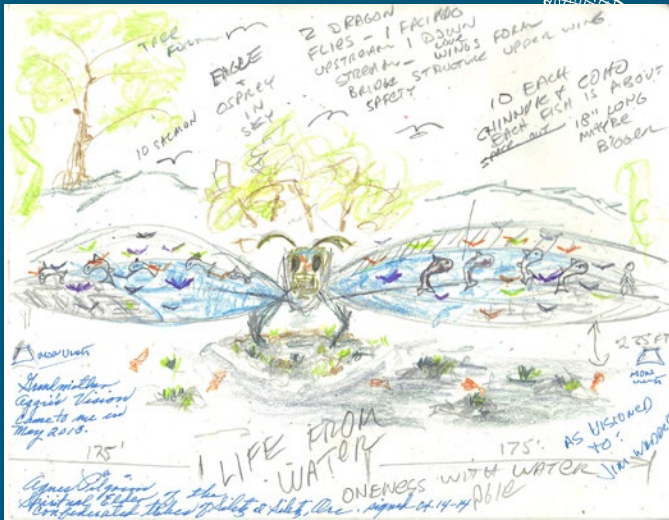 TREE
FORM
EAGLE
+
OSPREY
IN
SKY
10 SALMON
2 DRAGON
FLIES - 1 FACING
UPSTREAM 1 DOWN
STREAM - LOWER
WINGS FORM
BRIDGE STRUCTURE UPPER WING
SAFETY
10 EACH
CHINNOK & COHO
EACH FISH IS ABOUT
SPACE OUT 18" LONG
MAYBE
BIGGER
Grandmother
Aggie's Vision
Came to me in
May 2013.
235 FT
175'
LIFE FROM
WATER
175'
AS VISIONED
TO:
ONENESS WITH WATER
Agnes Pilgrim
Spiritual Elder of the
Confederated Tribes of Siletz Ore. signed 04-14-14